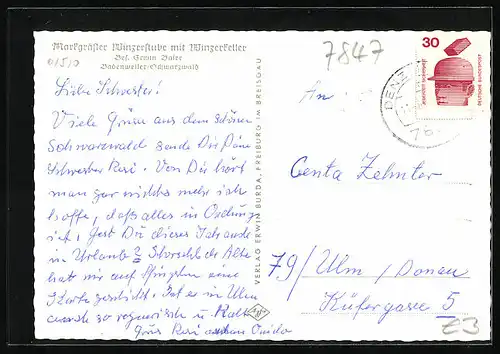 Markgräfler Winzerstube mit Winzerkeller
Bes. Erwin Baier
Badenweiler-Schwarzwald
7847
01510
30
DENZ
78
Liebe Schwester!
Viele Grüße aus dem schönen
Schwarzwald sendet Dir Deine
Schwester Rosi. Von Dir hört
man gar nichts mehr ich
hoffe, daß alles in Ordnung
ist, gest Du dieses Jahr auch
in Urlaub? Storchle der Alte
hat mir auf Pfingsten eine
Karte geschickt. Ist es in Ulm
auch so regnerisch u. kalt
Gruß Rosi Guido
VERLAG ERWIN BURDA, FREIBURG IM BREISGAU
An
Centa Zehnter
79/ Ulm/Donau
Küfergasse 5
E3